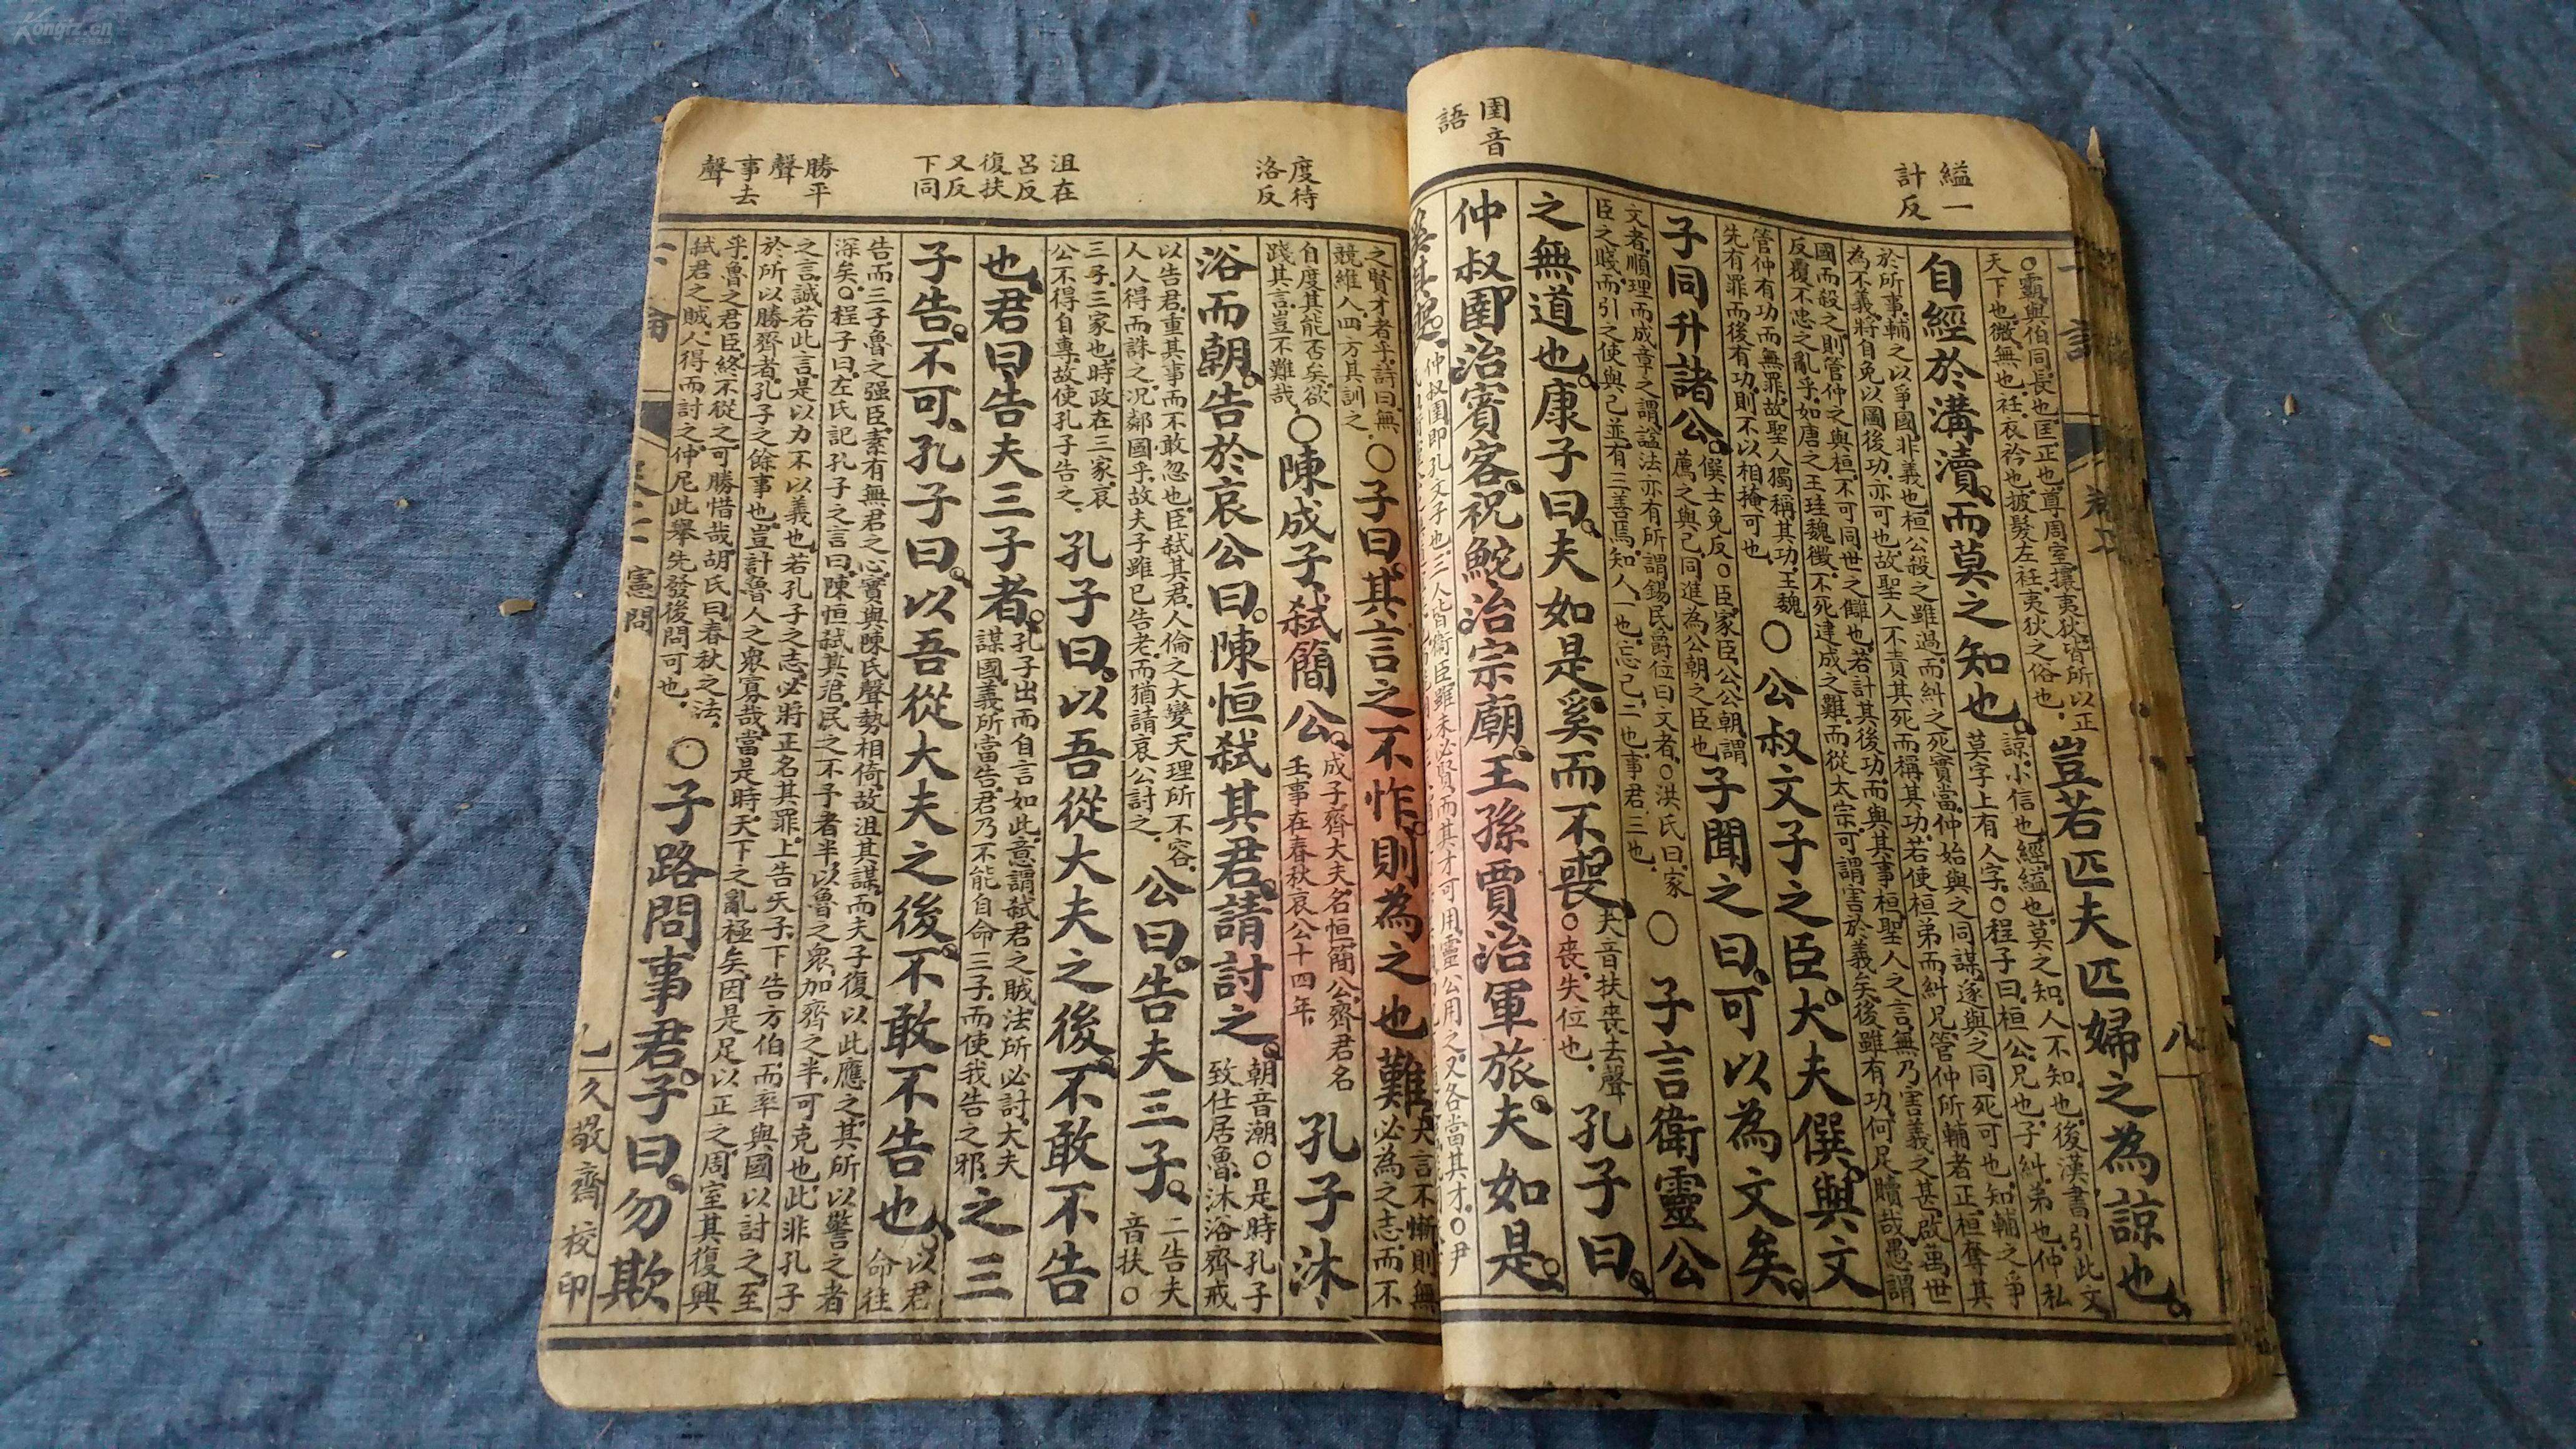 縊一
計反
圉音
語
八
○霸與伯同長也匡正也尊周室攘夷狄皆所以正
天下也微無也衽衣衿也被髮左衽夷狄之俗也
豈若匹夫匹婦之為諒也
自經於溝瀆而莫之知也
諒小信也經縊也莫之知人不知也後漢書引此文
莫字上有人字○程子曰桓公兄也子糾弟也仲私
於所事輔之以爭國非義也桓公殺之雖過而糾之死實當仲始與之同謀遂與之同死可也知輔之爭
為不義將自免以圖後功亦可也故聖人不責其死而稱其功若使桓弟而糾兄管仲所輔者正桓奪其
國而殺之則管仲之與桓不可同世之讎也若計其後功而與其事桓聖人之言無乃害義之甚啟萬世
反覆不忠之亂乎如唐之王珪魏徵不死建成之難而從太宗可謂害於義矣後雖有功何足贖哉愚謂
管仲有功而無罪故聖人獨稱其功王魏
先有罪而後有功則不以相掩可也
○公叔文子之臣大夫僎與文
子同升諸公
僎士免反○臣家臣公公朝謂
薦之與己同進為公朝之臣也
子聞之曰可以為文矣
文者順理而成章之謂謚法亦有所謂錫民爵位曰文者○洪氏曰家
臣之賤而引之使與己並有三善焉知人一也忘己二也事君三也
○子言衛靈公
之無道也康子曰夫如是奚而不喪
夫音扶喪去聲
○喪失位也
孔子曰
仲叔圉治賓客祝鮀治宗廟王孫賈治軍旅夫如是
奚其喪
仲叔圉即孔文子也三人皆衛臣雖未必賢而其才可用靈公用之又各當其才○尹
度待
洛反
沮在
呂反
復扶
又反
下同
勝平
聲
事去
聲
之賢才者乎詩曰無
競維人四方其訓之
○子曰其言之不怍則為之也難
大言不慚則無
必為之志而不
自度其能否矣欲
踐其言豈不難哉
○陳成子弒簡公
成子齊大夫名恒簡公齊君名
壬事在春秋哀公十四年
孔子沐
浴而朝告於哀公曰陳恒弒其君請討之
朝音潮○是時孔子
致仕居魯沐浴齊戒
以告君重其事而不敢忽也臣弒其君人倫之大變天理所不容
人人得而誅之況鄰國乎故夫子雖已告老而猶請哀公討之
公曰告夫三子
二告夫
音扶○
三子三家也時政在三家哀
公不得自專故使孔子告之
孔子曰以吾從大夫之後不敢不告
也君曰告夫三子者
孔子出而自言如此意謂弒君之賊法所必討大夫
謀國義所當告君乃不能自命三子而使我告之邪
之三
子告不可孔子曰以吾從大夫之後不敢不告也
以君
命往
告而三子魯之强臣素有無君之心實與陳氏聲勢相倚故沮其謀而夫子復以此應之其所以警之者
深矣○程子曰左氏記孔子之言曰陳恒弒其君民之不予者半以魯之衆加齊之半可克也此非孔子
之言誠若此言是以力不以義也若孔子之志必將正名其罪上告天子下告方伯而率與國以討之至
於所以勝齊者孔子之餘事也豈計魯人之衆寡哉當是時天下之亂極矣因是足以正之周室其復興
乎魯之君臣終不從之可勝惜哉胡氏曰春秋之法
弒君之賊人得而討之仲尼此舉先發後聞可也
○子路問事君子曰勿欺
憲問
久敬齋校印